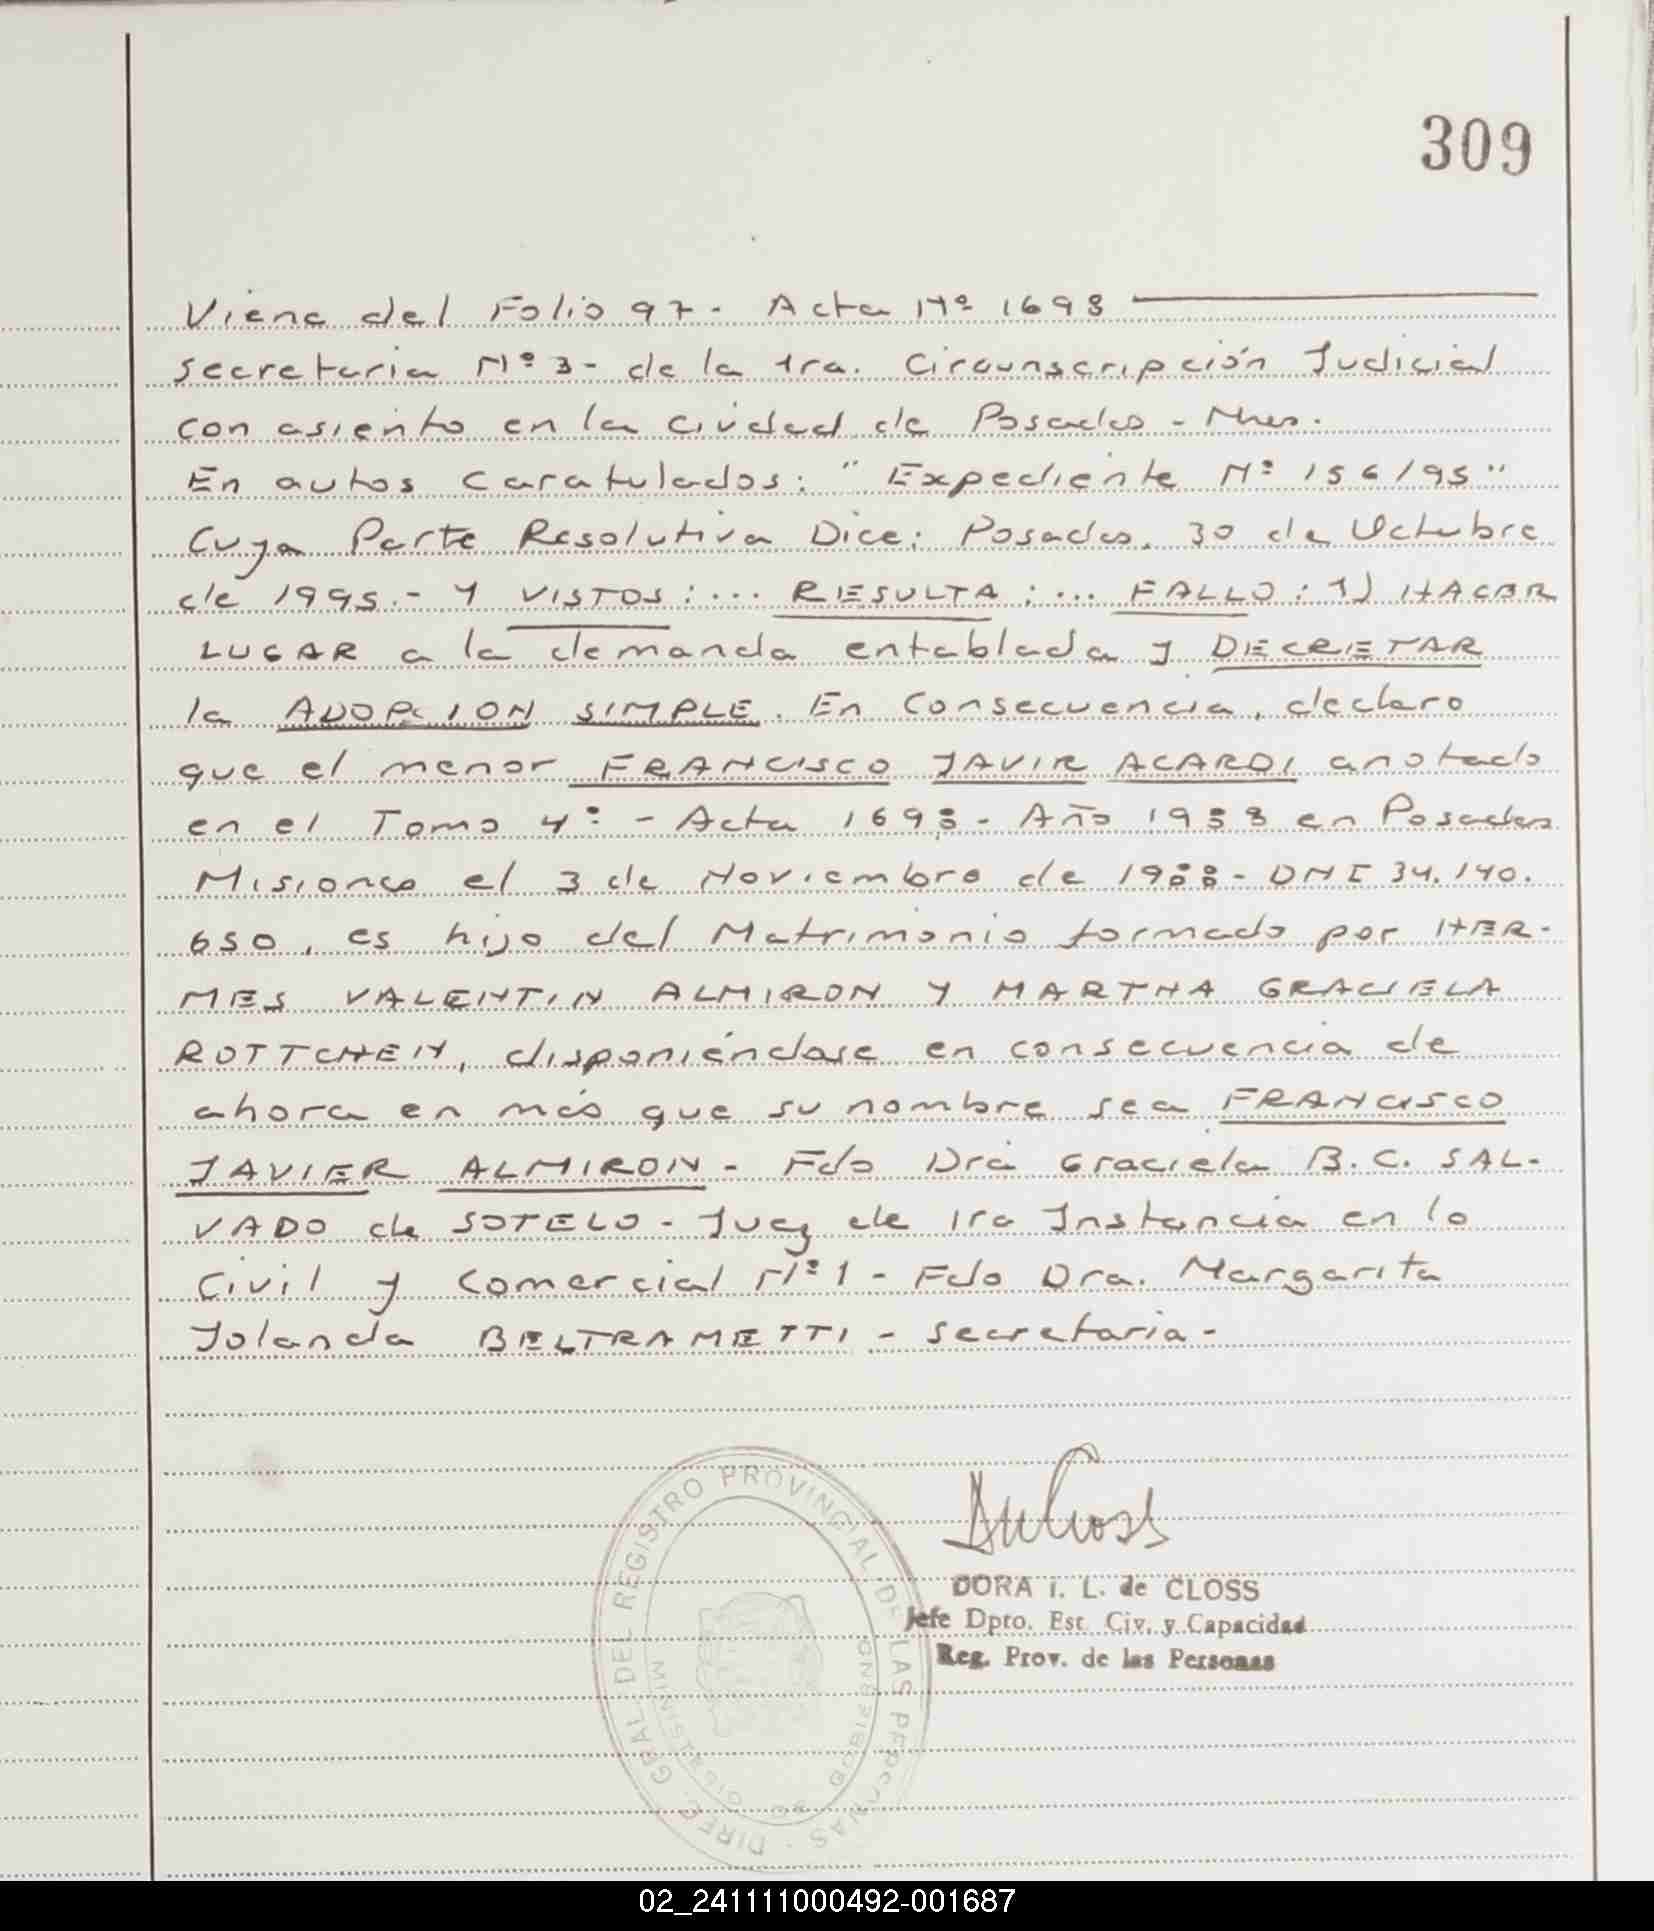 309
Viene del Folio 97- Acta Nº 1698
secretaria Nº 3- de la 1ra. Circunscripción Judicial
con asiento en la ciudad de Posadas - Mnes.
En autos caratulados: "Expediente Nº 156/95"
Cuya Parte Resolutiva Dice: Posadas, 30 de Octubre
de 1995.- Y VISTOS: ... RESULTA: ... FALLO: 1) HACER
LUGAR a la demanda entablada y DECRETAR
la ADOPCION SIMPLE. En Consecuencia, declaro
que el menor FRANCISCO JAVIR ACARDI anotado
en el Tomo 4º - Acta 1698- Año 1988 en Posadas
Misiones el 3 de Noviembre de 1988- DNI 34.140.
650, es hijo del Matrimonio formado por HER-
MES VALENTIN ALMIRON Y MARTHA GRACIELA
ROTTCHEN, disponiéndose en consecuencia de
ahora en más que su nombre sea FRANCISCO
JAVIER ALMIRON - Fdo Dra Graciela B. C. SAL-
VADO de SOTELO - Juez de 1ra Instancia en lo
Civil y Comercial Nº 1 - Fdo Dra. Margarita
Yolanda BELTRAMETTI - secretaria-
DIREC. GRAL DEL REGISTRO PROVINCIAL DE LAS PERSONAS
MINISTERIO DE GOBIERNO
DORA I. L. de CLOSS
Jefe Dpto. Est. Civ. y Capacidad
Reg. Prov. de las Personas
02_241111000492-001687